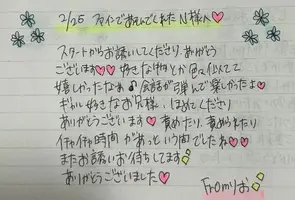 2/25 ラインであそんでくれた N様へ♡
スタートからお誘いしてくださり、ありがとう
ございます♡♡ 好きな物とか色々似てて
嬉しかったなぁ♪ 会話が弾んで楽しかったよ♡
ギャル好きなお兄様、ほめてくださり
ありがとうございます♡ 責めたり、責められたり
イチャイチャ時間があっという間でしたね♡♡
またお誘いお待ちしてます
ありがとうございました♡
Fromりお